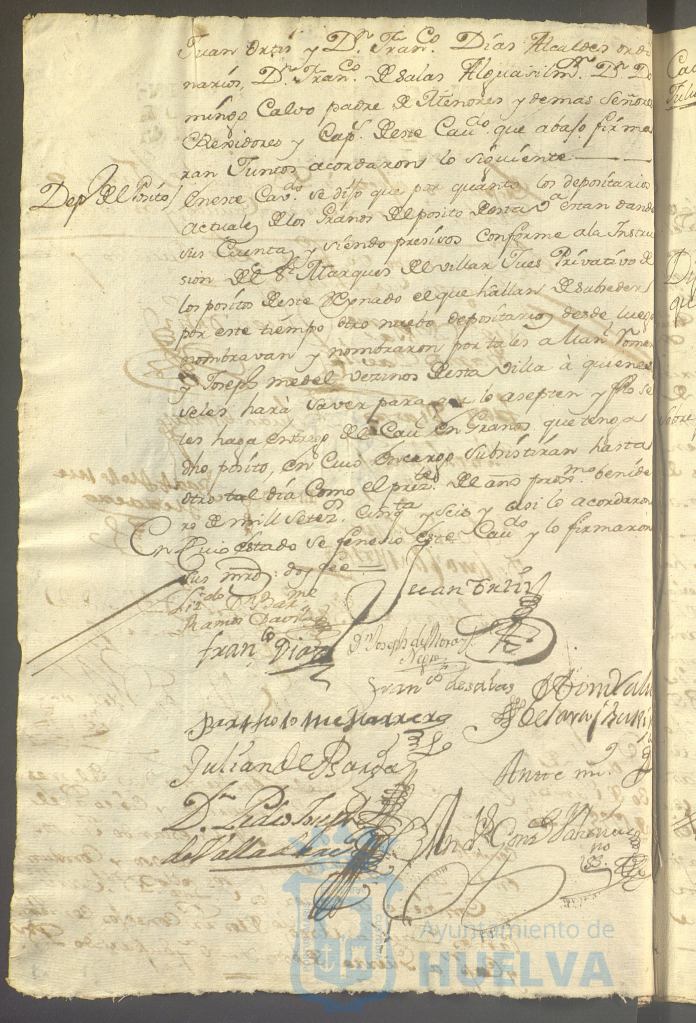 Juan Ortis y Dn. Franco. Días Alcaldes ordi
narios, Dn. Franco. de salas Alguasil mr. Dn. Do
mingo Calvo padre de Menores y demas Señores
Rexidores y Capres. de este Cavdo que abajo firma
ran Juntos acordaron lo siguiente
Depo del Posito
En este Cavdo. se dijo que por quanto los depositarios
actuales de los Granos del posito de esta va. estan dando
sus Cuentas y siendo presisos conforme a la Instru
sion del Sr. Marques del villar Jues Privativo de
los positos de este Reynado el que hallan de subceder
por este tiempo otro nuebo depositario desde luego
nombravan y nombraron por tales a Juan
y Joseph medel vezinos de esta Villa à quienes
se les hará saver para que lo asepten y se
les haga entrega del Cau en Granos, que tenga
dho. posito, en Cuio encargo subsistirán hasta
otro tal día como el preste. del ano proxmo. benide
ro de mill Setezs. Cinqta. y Seis y asi lo acordaron
En Cuio estado se fenesio este Cavdo y lo firmaron
sus mrds. doy fee
Juan Ortis
Lizdo. Dn.
Ramos Davila
Franco Dias
Dn Joseph de Mora
Negro
Franco de salas
Bartholome Marrero
Julian de Barza
Ante mi
Dn Pedro
de Valladares
Ayuntamiento de
HUELVA